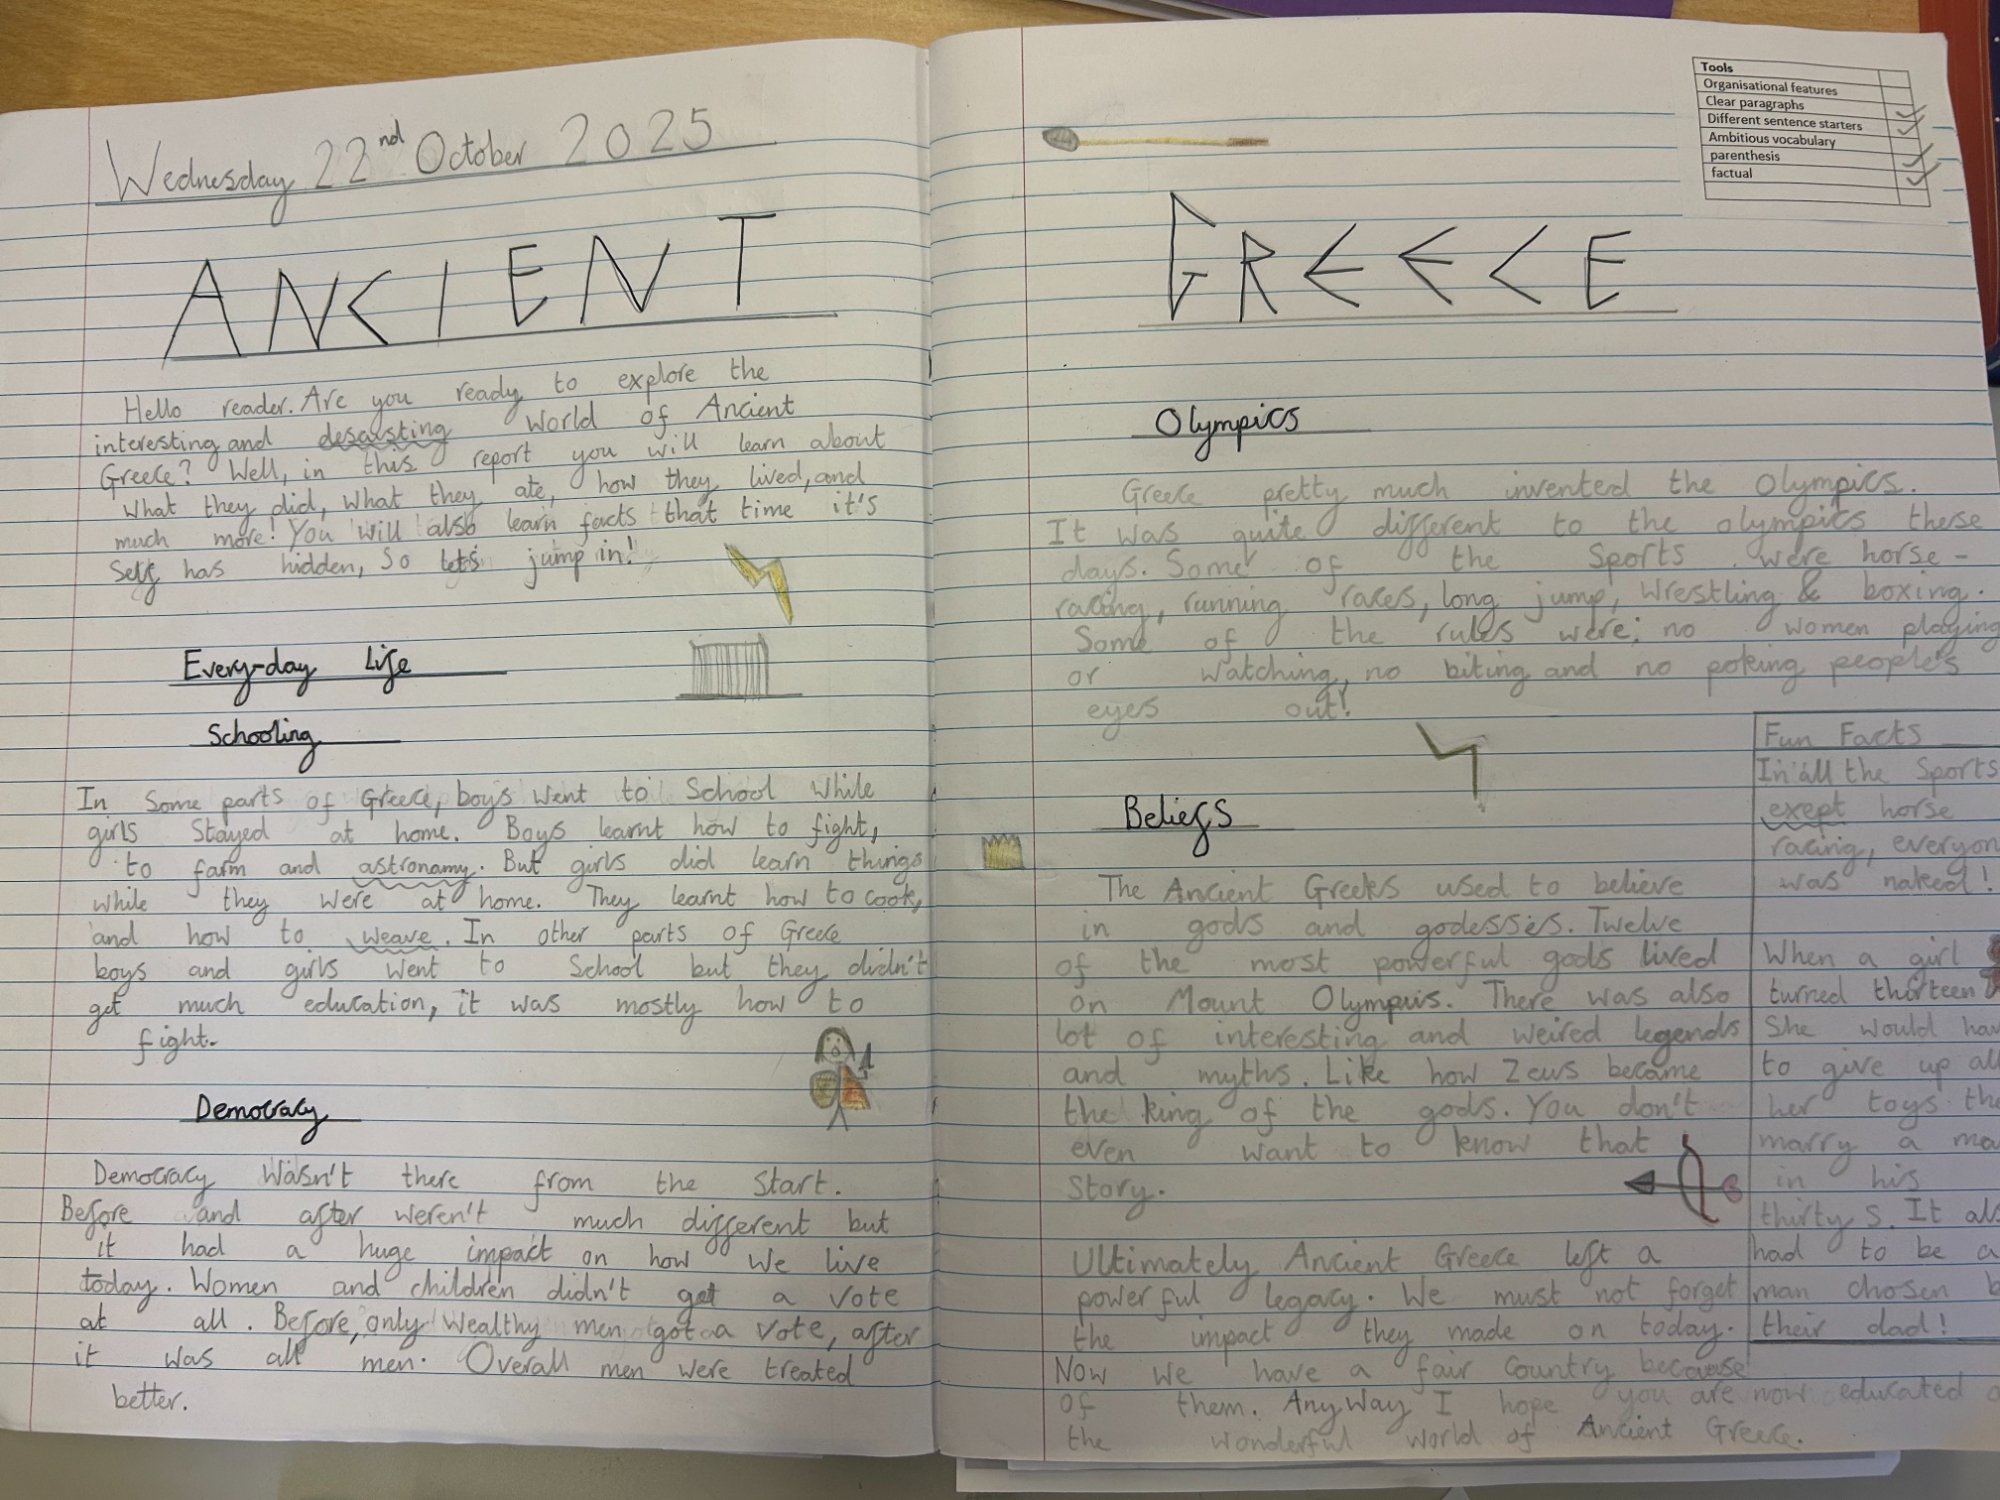 Wednesday 22nd October 2025
ANCIENT
Hello reader. Are you ready to explore the
interesting and desausting world of Ancient
Greece? Well, in this report you will learn about
what they did, what they ate, how they lived, and
much more! You will also learn facts that time it's
self has hidden, so let's jump in!
Every-day Life
Schooling
In some parts of Greece, boys went to School while
girls stayed at home. Boys learnt how to fight,
to farm and astronomy. But girls did learn things
while they were at home. They learnt how to cook,
and how to weave. In other parts of Greece
boys and girls went to School but they didn't
get much education, it was mostly how to
fight.
Democracy
Democracy wasn't there from the start.
Before and after weren't much different but
it had a huge impact on how we live
today. Women and children didn't get a vote
at all. Before, only wealthy men got a vote, after
it was all men. Overall men were treated
better.
Tools
Organisational features
Clear paragraphs
Different sentence starters
Ambitious vocabulary
parenthesis
factual
GREECE
Olympics
Greece pretty much invented the Olympics.
It was quite different to the olympics these
days. Some of the sports were horse-
racing, running races, long jump, wrestling & boxing.
Some of the rules were: no women playing
or watching, no biting and no poking people's
eyes out!
Beliefs
The Ancient Greeks used to believe
in gods and godesses. Twelve
of the most powerful gods lived
on Mount Olympus. There was also
lot of interesting and weired legends
and myths. Like how Zeus became
the king of the gods. You don't
even want to know that
story.
Ultimately Ancient Greece left a
powerful legacy. We must not forget
the impact they made on today.
Now we have a fair country because
of them. Anyway I hope you are now educated
the wonderful world of Ancient Greece.
Fun Facts
In all the Sports
exept horse
racing, everyon
was naked!
When a girl
turned thirteen
She would hav
to give up all
her toys the
marry a ma
in his
thirty s. It als
had to be a
man chosen b
their dad!